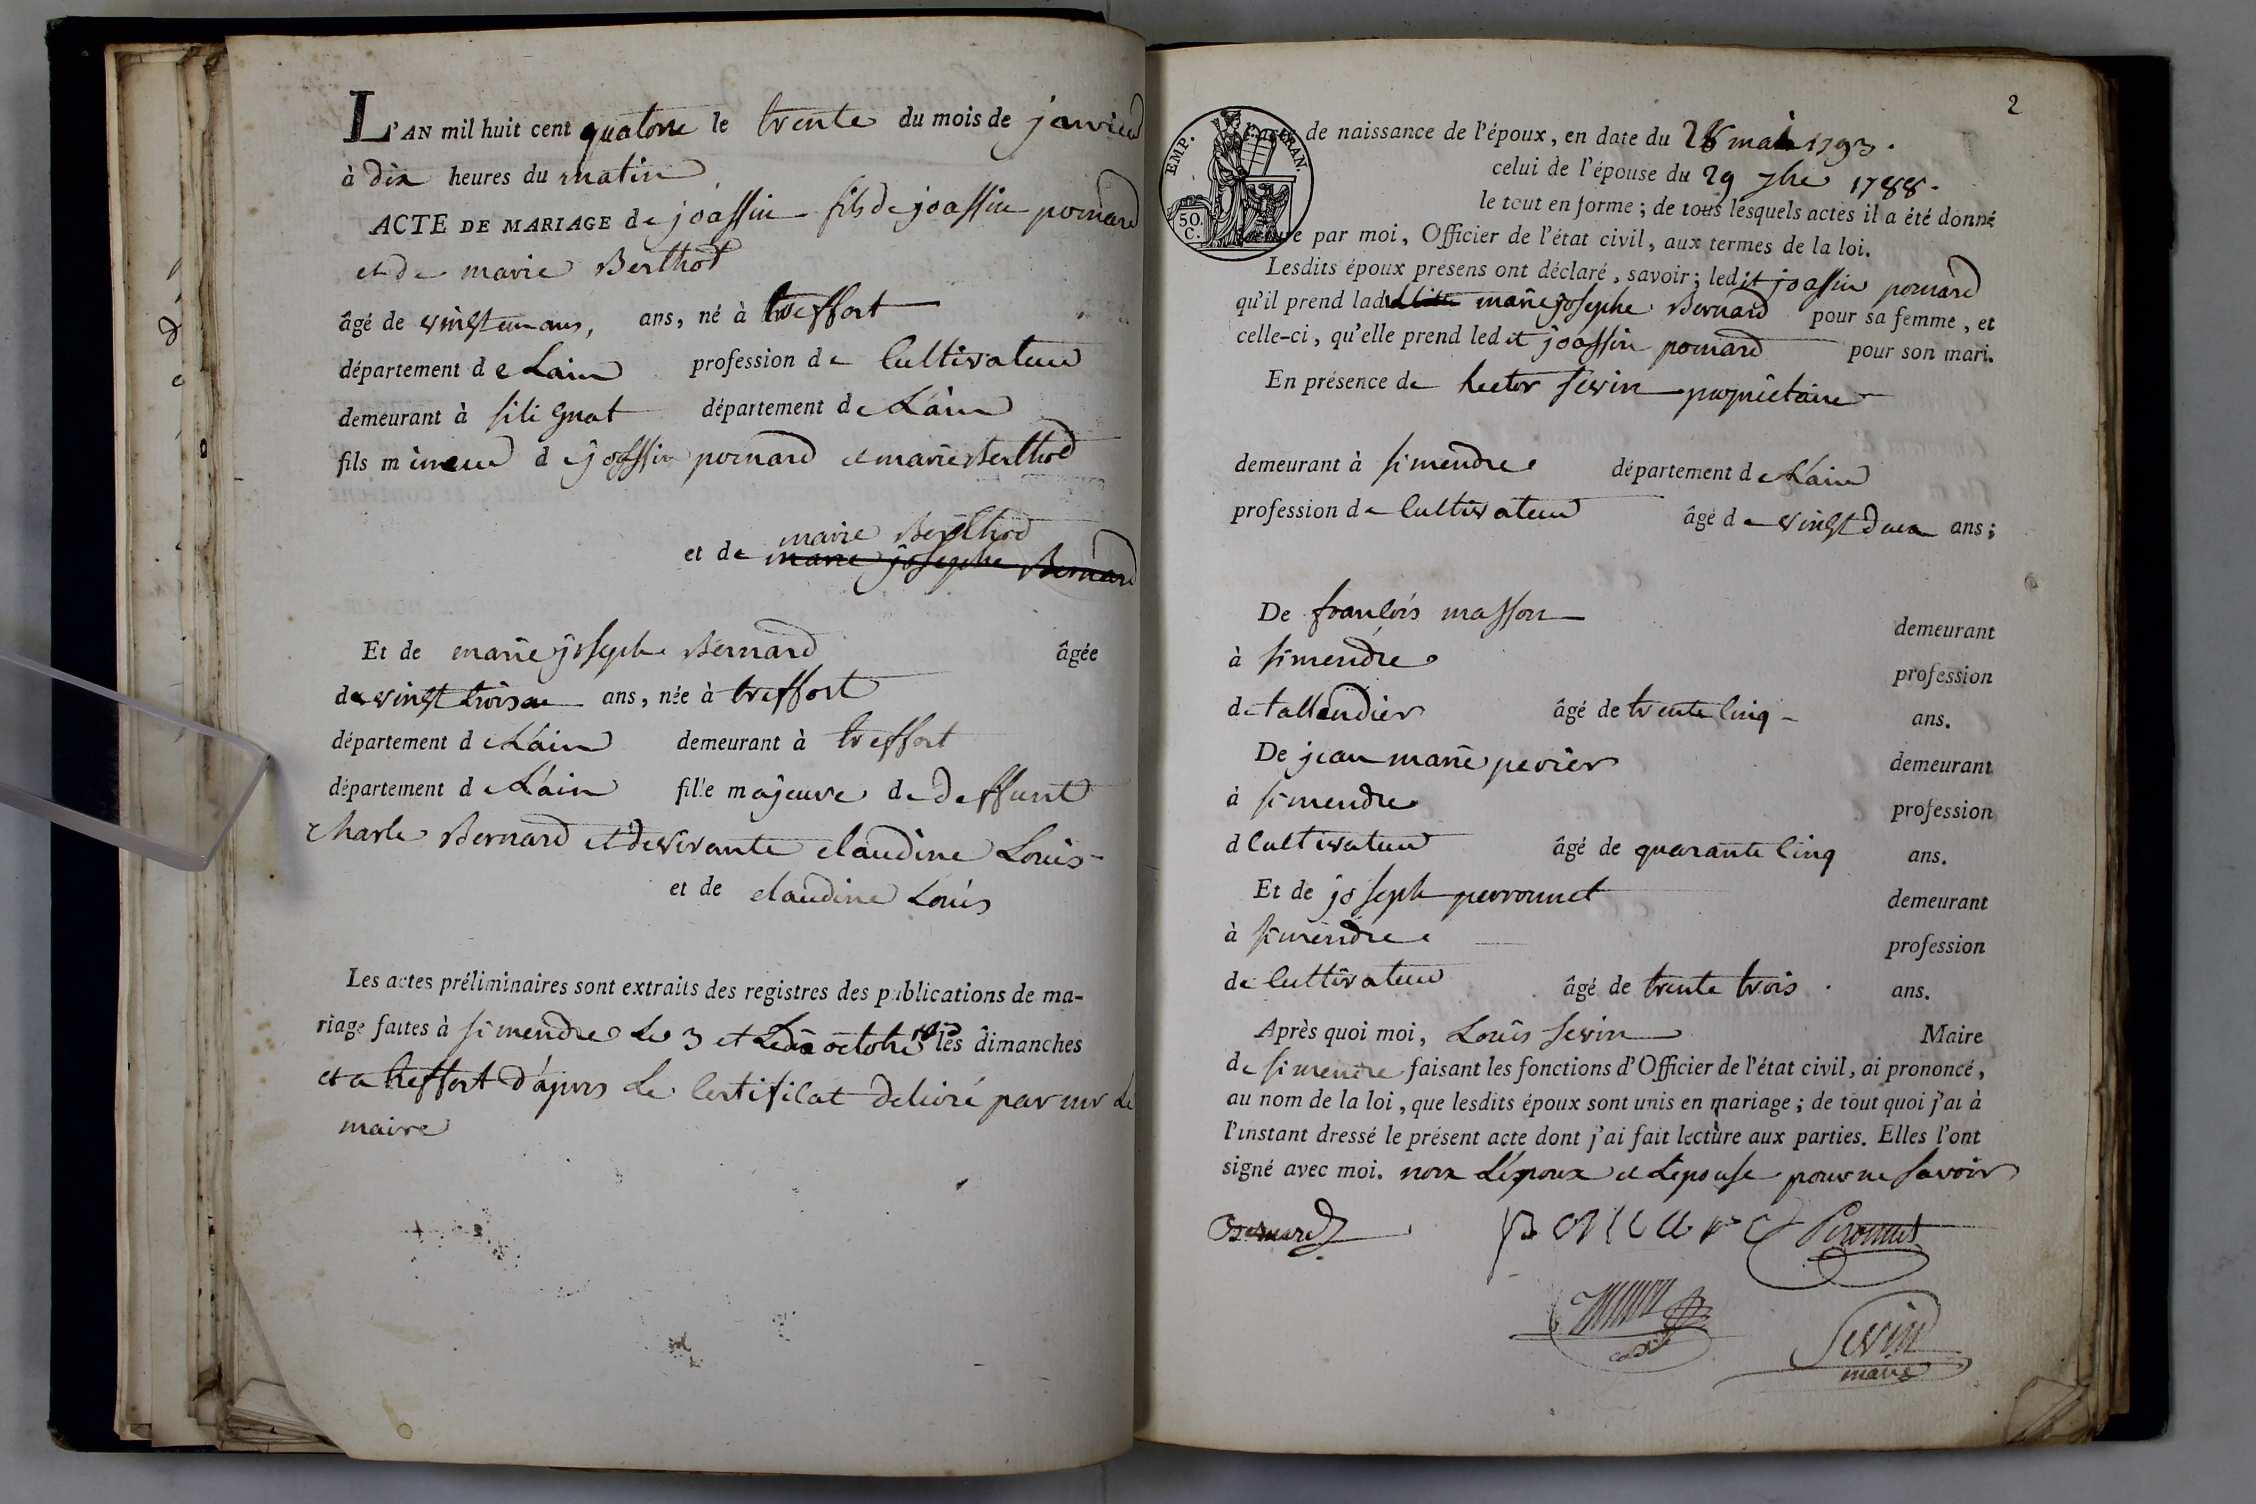 L'AN mil huit cent quatorze le trente du mois de janvier
à dix heures du matin
ACTE DE MARIAGE de joassin fils de joassin pornard
et de marie Berthod
âgé de vingt un ans, ans, né à treffort
département de Lain profession de Cultivateur
demeurant à silignat département de L'ain
fils mineur de joassin pornard et marie Berthod
marie Berthod
et de marie josephe Bernard
Et de marie josephe Bernard âgée
de vingt trois ans, née à treffort
département de L'ain demeurant à treffort
département de L'ain fille majeure de deffunt
charle Bernard et de vivante claudine Louis
et de claudine Louis
Les actes préliminaires sont extraits des registres des publications de ma-
riage faites à simendre le 3 et octobre les dimanches
et a treffort d'aprés le Certificat delivré par mr le
maire
2
EMP. FRAN.
50. C.
l'acte de naissance de l'époux, en date du 28 mai 1793.
celui de l'épouse du 29 7bre 1788.
le tout en forme; de tous lesquels actes il a été donné
lecture par moi, Officier de l'état civil, aux termes de la loi.
Lesdits époux présens ont déclaré, savoir; ledit joassin pornard
qu'il prend lad marie josephe Bernard pour sa femme, et
celle-ci, qu'elle prend ledit joassin pornard pour son mari.
En présence de hector sevin propriétaire
demeurant à simendre département de L'ain
profession de Cultivateur âgé de vingt deux ans;
De francois masson demeurant
à simendre profession
de tallendier âgé de trente cinq ans.
De jean marie perier demeurant
à simendre profession
d Cultivateur âgé de quarante cinq ans.
Et de joseph perronnet demeurant
à simendre profession
de Cultivateur âgé de trente trois ans.
Après quoi moi, Louis sevin Maire
de simendre faisant les fonctions d'Officier de l'état civil, ai prononcé,
au nom de la loi, que lesdits époux sont unis en mariage; de tout quoi j'ai à
l'instant dressé le présent acte dont j'ai fait lecture aux parties. Elles l'ont
signé avec moi. non L'époux et L'epouse pour ne savoir
Bernard Peronnet
Sevin
maire